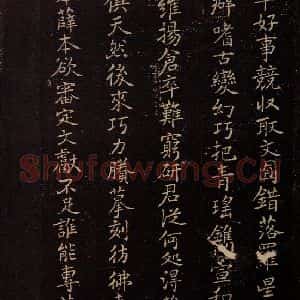 好事競収取文図錯落羅星
癖嗜古變幻巧記有瑤鐫
維揚倉卒難窮研君從何處得
俱天然後來巧力勝摹刻彷彿
薛本欲審定文獻不足誰能專
Shufawang.Cn